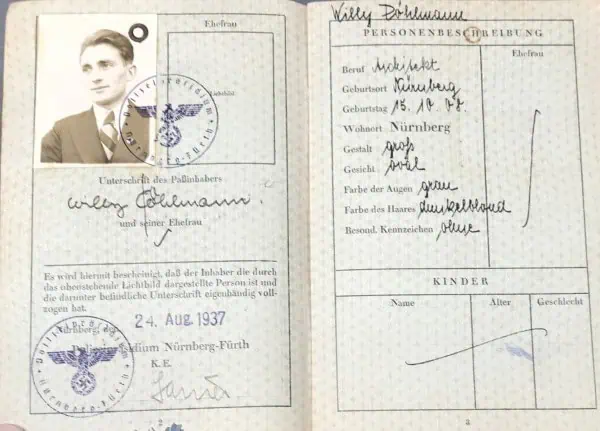 Ehefrau
Lichtbild
Polizeipräsidium
Nürnberg-Fürth
Unterschrift des Paßinhabers
Willy Döhlmann.
und seiner Ehefrau
Es wird hiermit bescheinigt, daß der Inhaber die durch
das obenstehende Lichtbild dargestellte Person ist und
die darunter befindliche Unterschrift eigenhändig voll-
zogen hat.
Nürnberg, den 24. Aug. 1937
Polizeipräsidium Nürnberg-Fürth
K. E.
Polizeipräsidium
Nürnberg-Fürth
2
Willy Döhlmann
PERSONENBESCHREIBUNG
Ehefrau
Beruf Architekt
Geburtsort Nürnberg
Geburtstag 15. 10. 08.
Wohnort Nürnberg
Gestalt groß
Gesicht oval
Farbe der Augen grau
Farbe des Haares dunkelblond
Besond. Kennzeichen ohne
KINDER
Name Alter Geschlecht